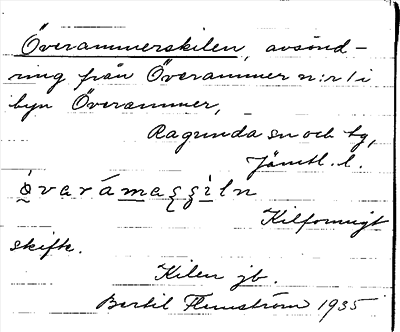 Överammerskilen, avsönd-
ring från Överammer n:r 1 i
byn Överammer,
Ragunda sn och tg,
Jämtl. l.
Kilformigt
skifte.
Kilen jb.
Bertil Flemström 1935